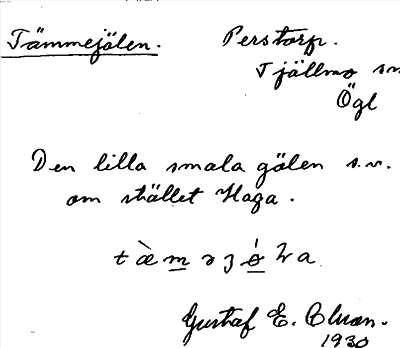 Tämmejälen. Perstorp.
Tjällmo sn
Ögl
Den lilla smala gölen s.v.
om stället Haga.
Gustaf E.
1930